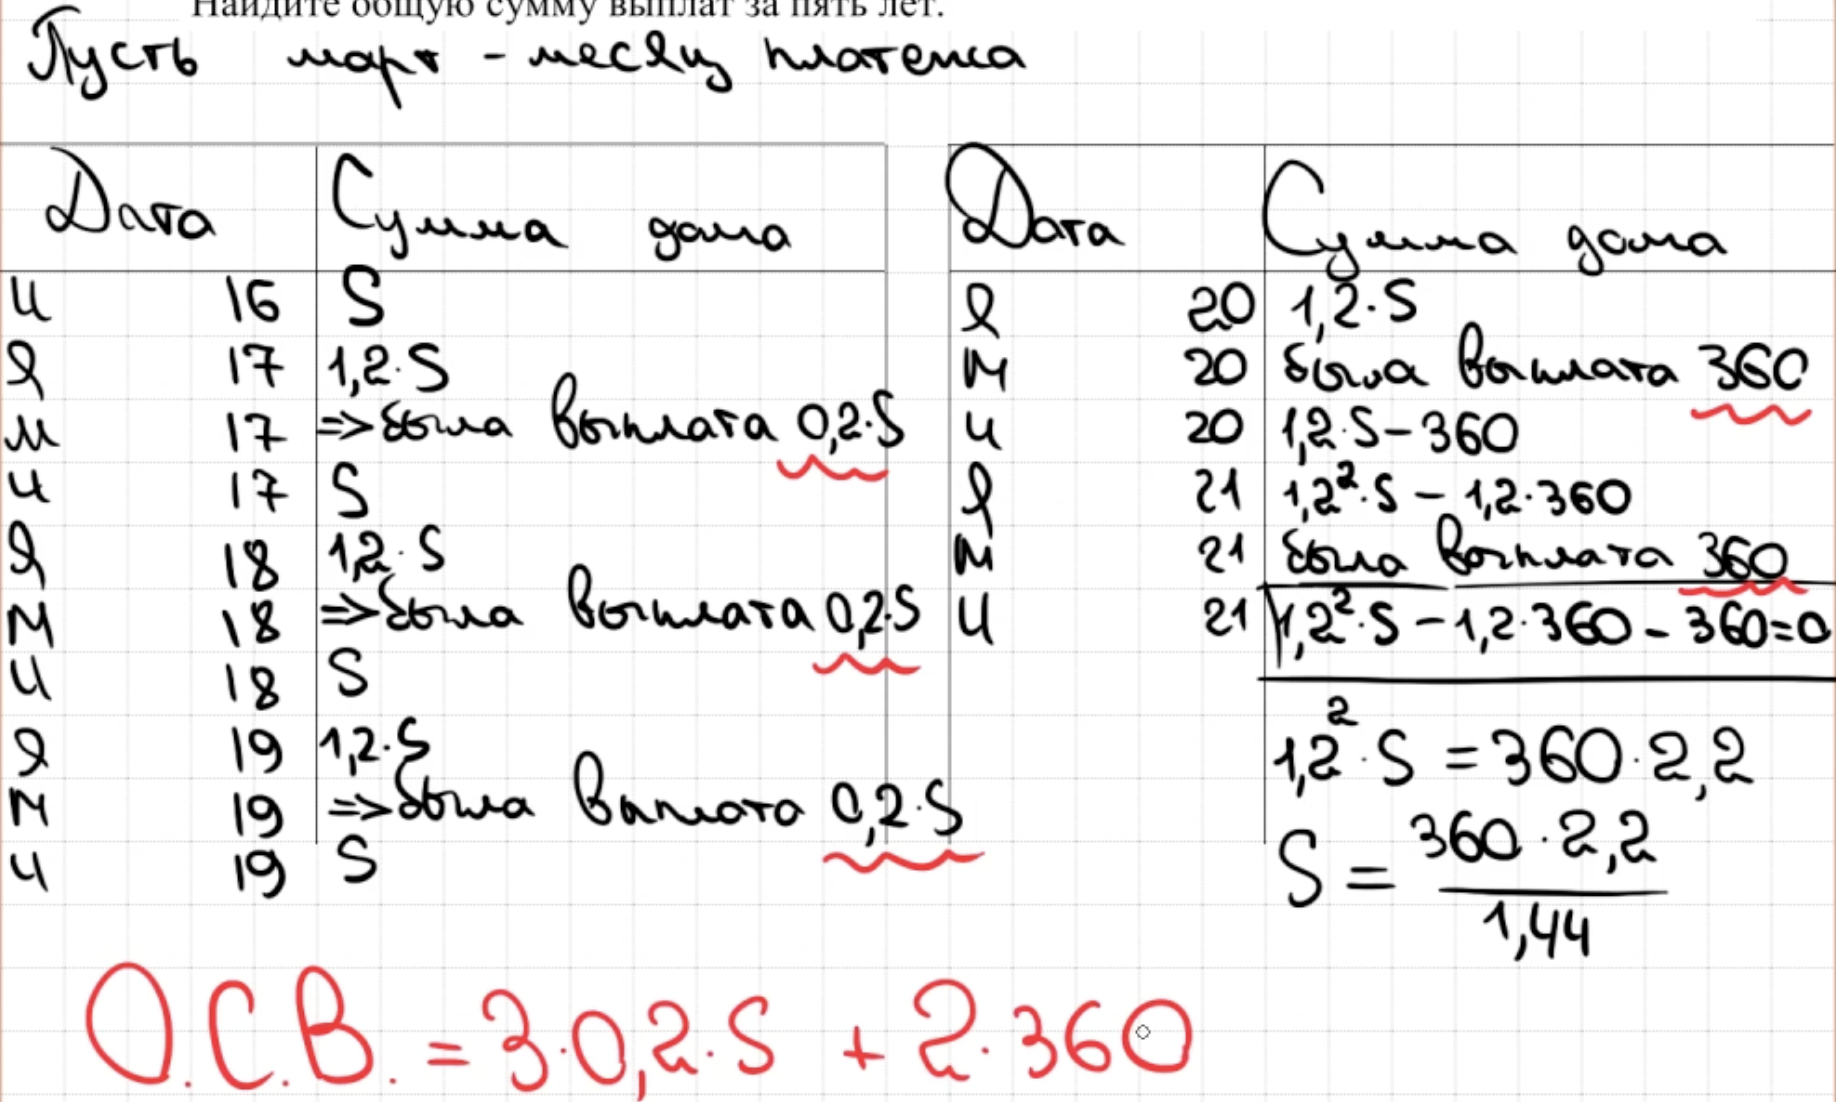 Найдите общую сумму выплат за пять лет.
Пусть март - месяц платежа
Дата Сумма долга
И 16 S
Я 17 1,2·S
М 17 => была выплата 0,2·S
И 17 S
Я 18 1,2·S
М 18 => была выплата 0,2·S
И 18 S
Я 19 1,2·S
М 19 => была выплата 0,2·S
И 19 S
Дата Сумма долга
Я 20 1,2·S
М 20 была выплата 360
И 20 1,2·S-360
Я 21 1,2²·S - 1,2·360
М 21 была выплата 360
И 21 1,2²·S - 1,2·360 - 360=0
1,2²·S = 360·2,2
S = 360·2,2
1,44
О.С.В. = 3·0,2·S + 2·360